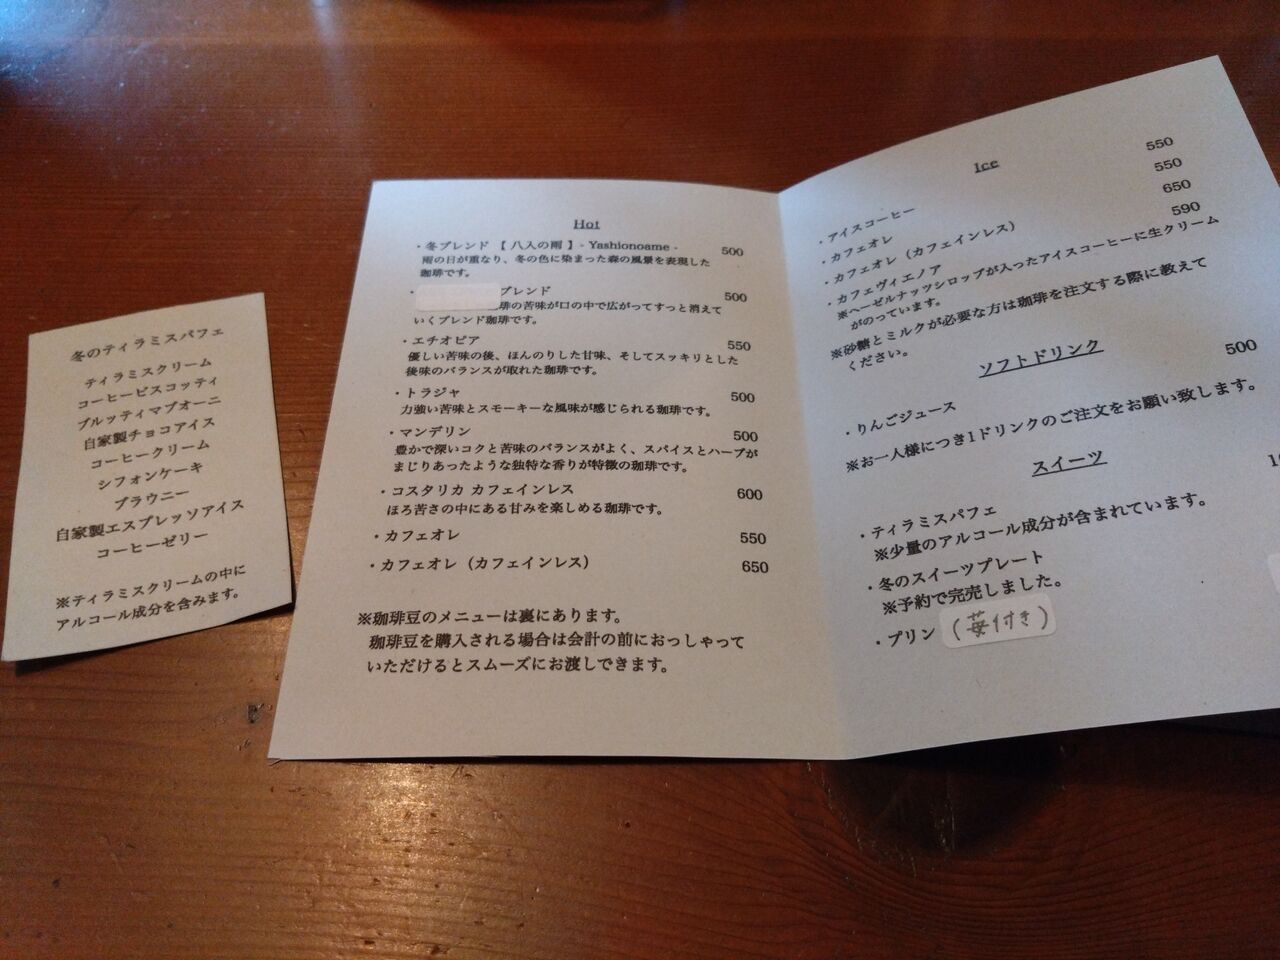 冬のティラミスパフェ
ティラミスクリーム
コーヒービスコッティ
ブルッティマブオーニ
自家製チョコアイス
コーヒークリーム
シフォンケーキ
ブラウニー
自家製エスプレッソアイス
コーヒーゼリー
※ティラミスクリームの中に
アルコール成分を含みます。
Hot
・冬ブレンド 【 八入の雨 】 - Yashionoame - 500
雨の日が重なり、冬の色に染まった森の風景を表現した
珈琲です。
・ ブレンド 500
琲の苦味が口の中で広がってすっと消えて
いくブレンド珈琲です。
・エチオピア 550
優しい苦味の後、ほんのりした甘味、そしてスッキリとした
後味のバランスが取れた珈琲です。
・トラジャ 500
力強い苦味とスモーキーな風味が感じられる珈琲です。
・マンデリン 500
豊かで深いコクと苦味のバランスがよく、スパイスとハーブが
まじりあったような独特な香りが特徴の珈琲です。
・コスタリカ カフェインレス 600
ほろ苦さの中にある甘みを楽しめる珈琲です。
・カフェオレ 550
・カフェオレ（カフェインレス） 650
※珈琲豆のメニューは裏にあります。
珈琲豆を購入される場合は会計の前におっしゃって
いただけるとスムーズにお渡しできます。
Ice
・アイスコーヒー 550
・カフェオレ 550
・カフェオレ（カフェインレス） 650
・カフェヴィエノア 590
※ヘーゼルナッツシロップが入ったアイスコーヒーに生クリーム
がのっています。
※砂糖とミルクが必要な方は珈琲を注文する際に教えて
ください。
ソフトドリンク
・りんごジュース 500
※お一人様につき1ドリンクのご注文をお願い致します。
スイーツ
・ティラミスパフェ
※少量のアルコール成分が含まれています。
・冬のスイーツプレート
※予約で完売しました。
・プリン（苺付き）